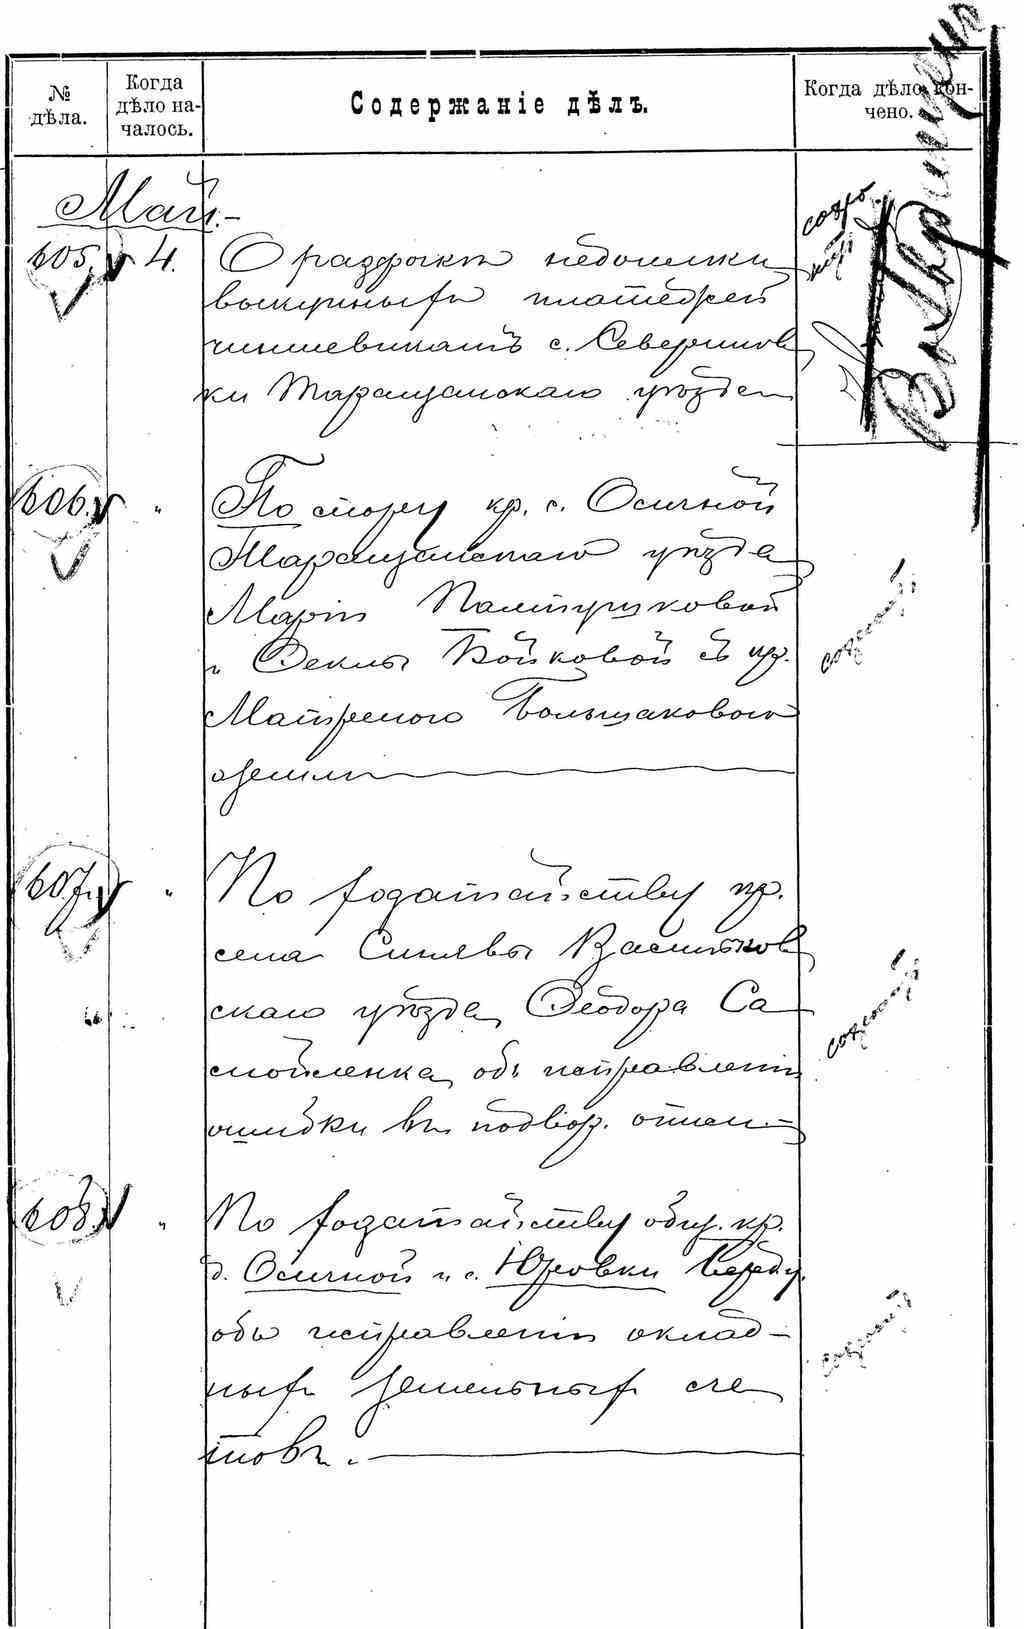 № дѣла.
Когда дѣло началось.
Содержаніе дѣлъ.
Когда дѣло кончено.
Май.-
605. 4. О разсрочкѣ недоимки
выкупныхъ платежей
чиншевикамъ с. Северинов
ки Таращанскаго уѣзда
606. " По спору кр. с. Осичной
Таращанскаго уѣзда
Маріи
и Феклы Бойковой съ кр.
Матреною Большаковою
о землѣ
607. " По ходатайству кр.
села Синявы Васильков
скаго уѣзда Феодора Са
мойленка объ исправленіи
ошибки въ подвор. опис.-
608. " По ходатайству общ. кр.
д. Осичной и с. Юровки
объ исправленіи оклад-
ныхъ земельныхъ сче
товъ.